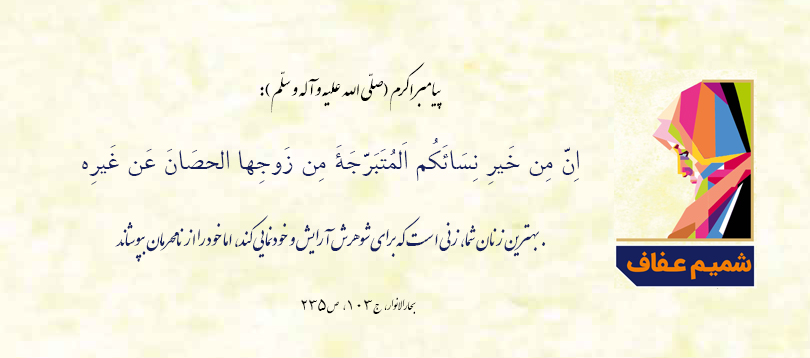 پیامبر اکرم (صلّی الله علیه و آله و سلّم ):
اِنّ مِن خَیرِ نِسَائَکُم اَلمُتَبَرّجَةَ مِن زَوجِها الحصَانَ عَن غَیرِه
. بهترین زنان شما، زنی است که برای شوهرش آرایش و خودنمایی کند، اما خود را از نامحرمان بپوشاند
بحارالانوار، ج ۱۰۳، ص ۲۳۵
شمیم عفاف